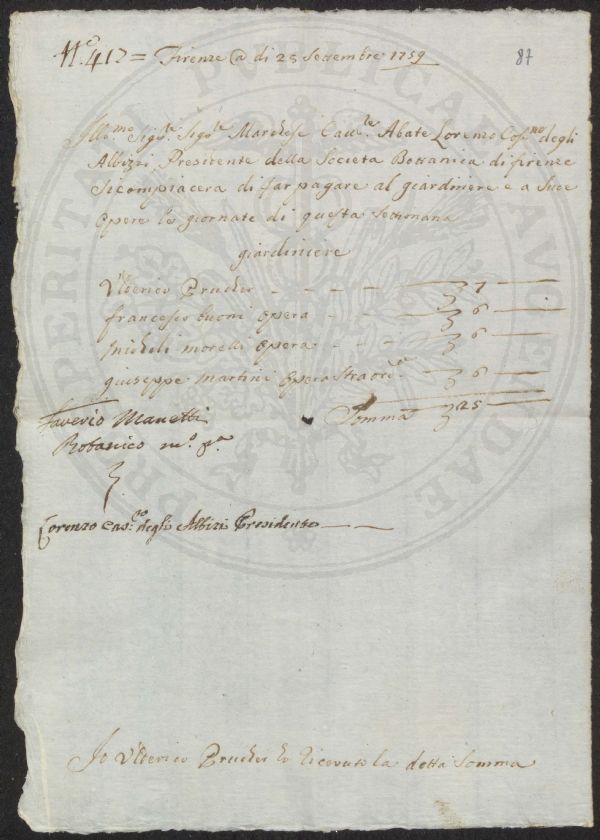 N.º 417 = Firenze @ di 25 Settembre 1759
87
Ill.mo Sig.re Sig.re Marchese Cav.re Abate Lorenzo degli
Albizzi Presidente della Societa Bottanica di firenze
Si compiacera di far pagare al giardiniere e a Sue
Opere le giornate di questa Settimana
giardiniere
Ulderico Prucher - - - - 7
francescho buoni opera - - - 6
Micheli morelli opera - - - 6
giuseppe martini opera straord.a - 6
Somma 25
Saverio Manetti
Botanico m.º p.ª
Lorenzo Cas.co degli Albizi Presidente
Io Ulderico Prucher ho Ricevuto la detta Somma
PERITAT PVBLICAE AVGENDAE